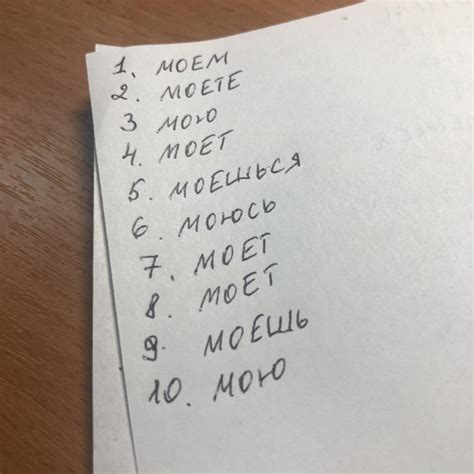 1. МОЕМ
2. МОЕТЕ
3 МОЮ
4. МОЕТ
5. МОЕШЬСЯ
6. МОЮСЬ
7. МОЕТ
8. МОЕТ
9. МОЕШЬ
10. МОЮ